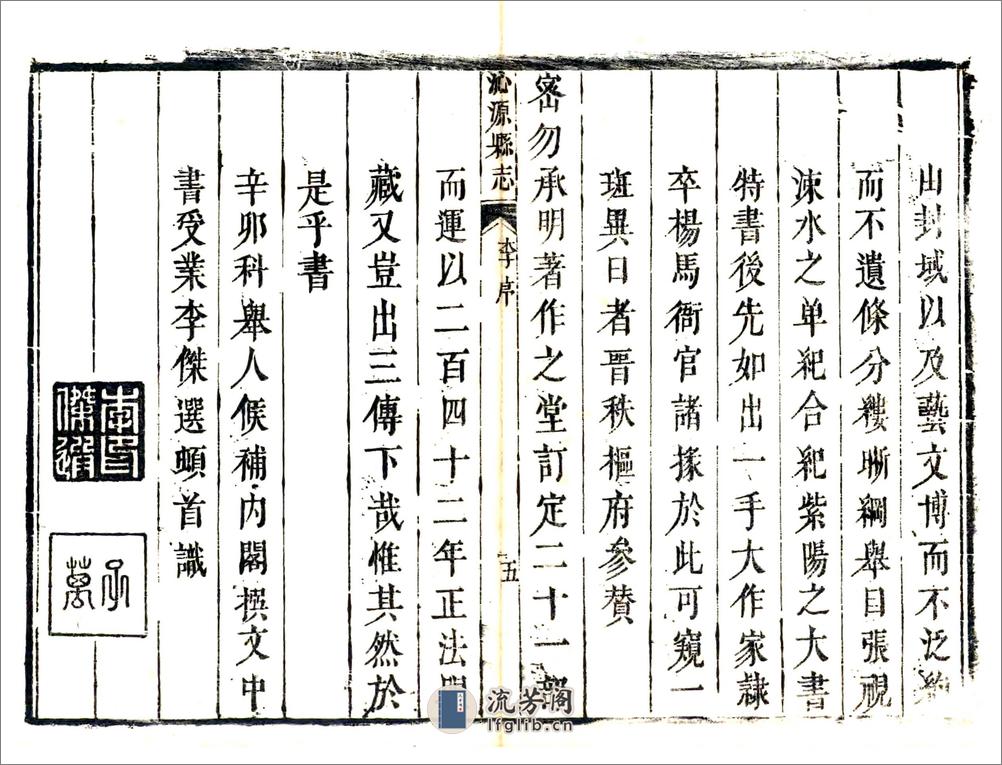 山封域以及藝文博而不泛約
而不遺條分縷晰綱舉目張視
涑水之单紀合紀紫陽之大書
特書後先如出一手大作家隷
卒楊馬衙官諸掾於此可窺一
斑異日者晋秩樞府參賛
密勿承明著作之堂訂定二十一部
沁源縣志
李序
五
而運以二百四十二年正法眼
藏又豈出三傳下哉惟其然於
是乎書
辛卯科舉人候補內閣撰文中
書受業李傑選頓首識
李印
傑選
子
萬
流芳閣
lfglib.cn